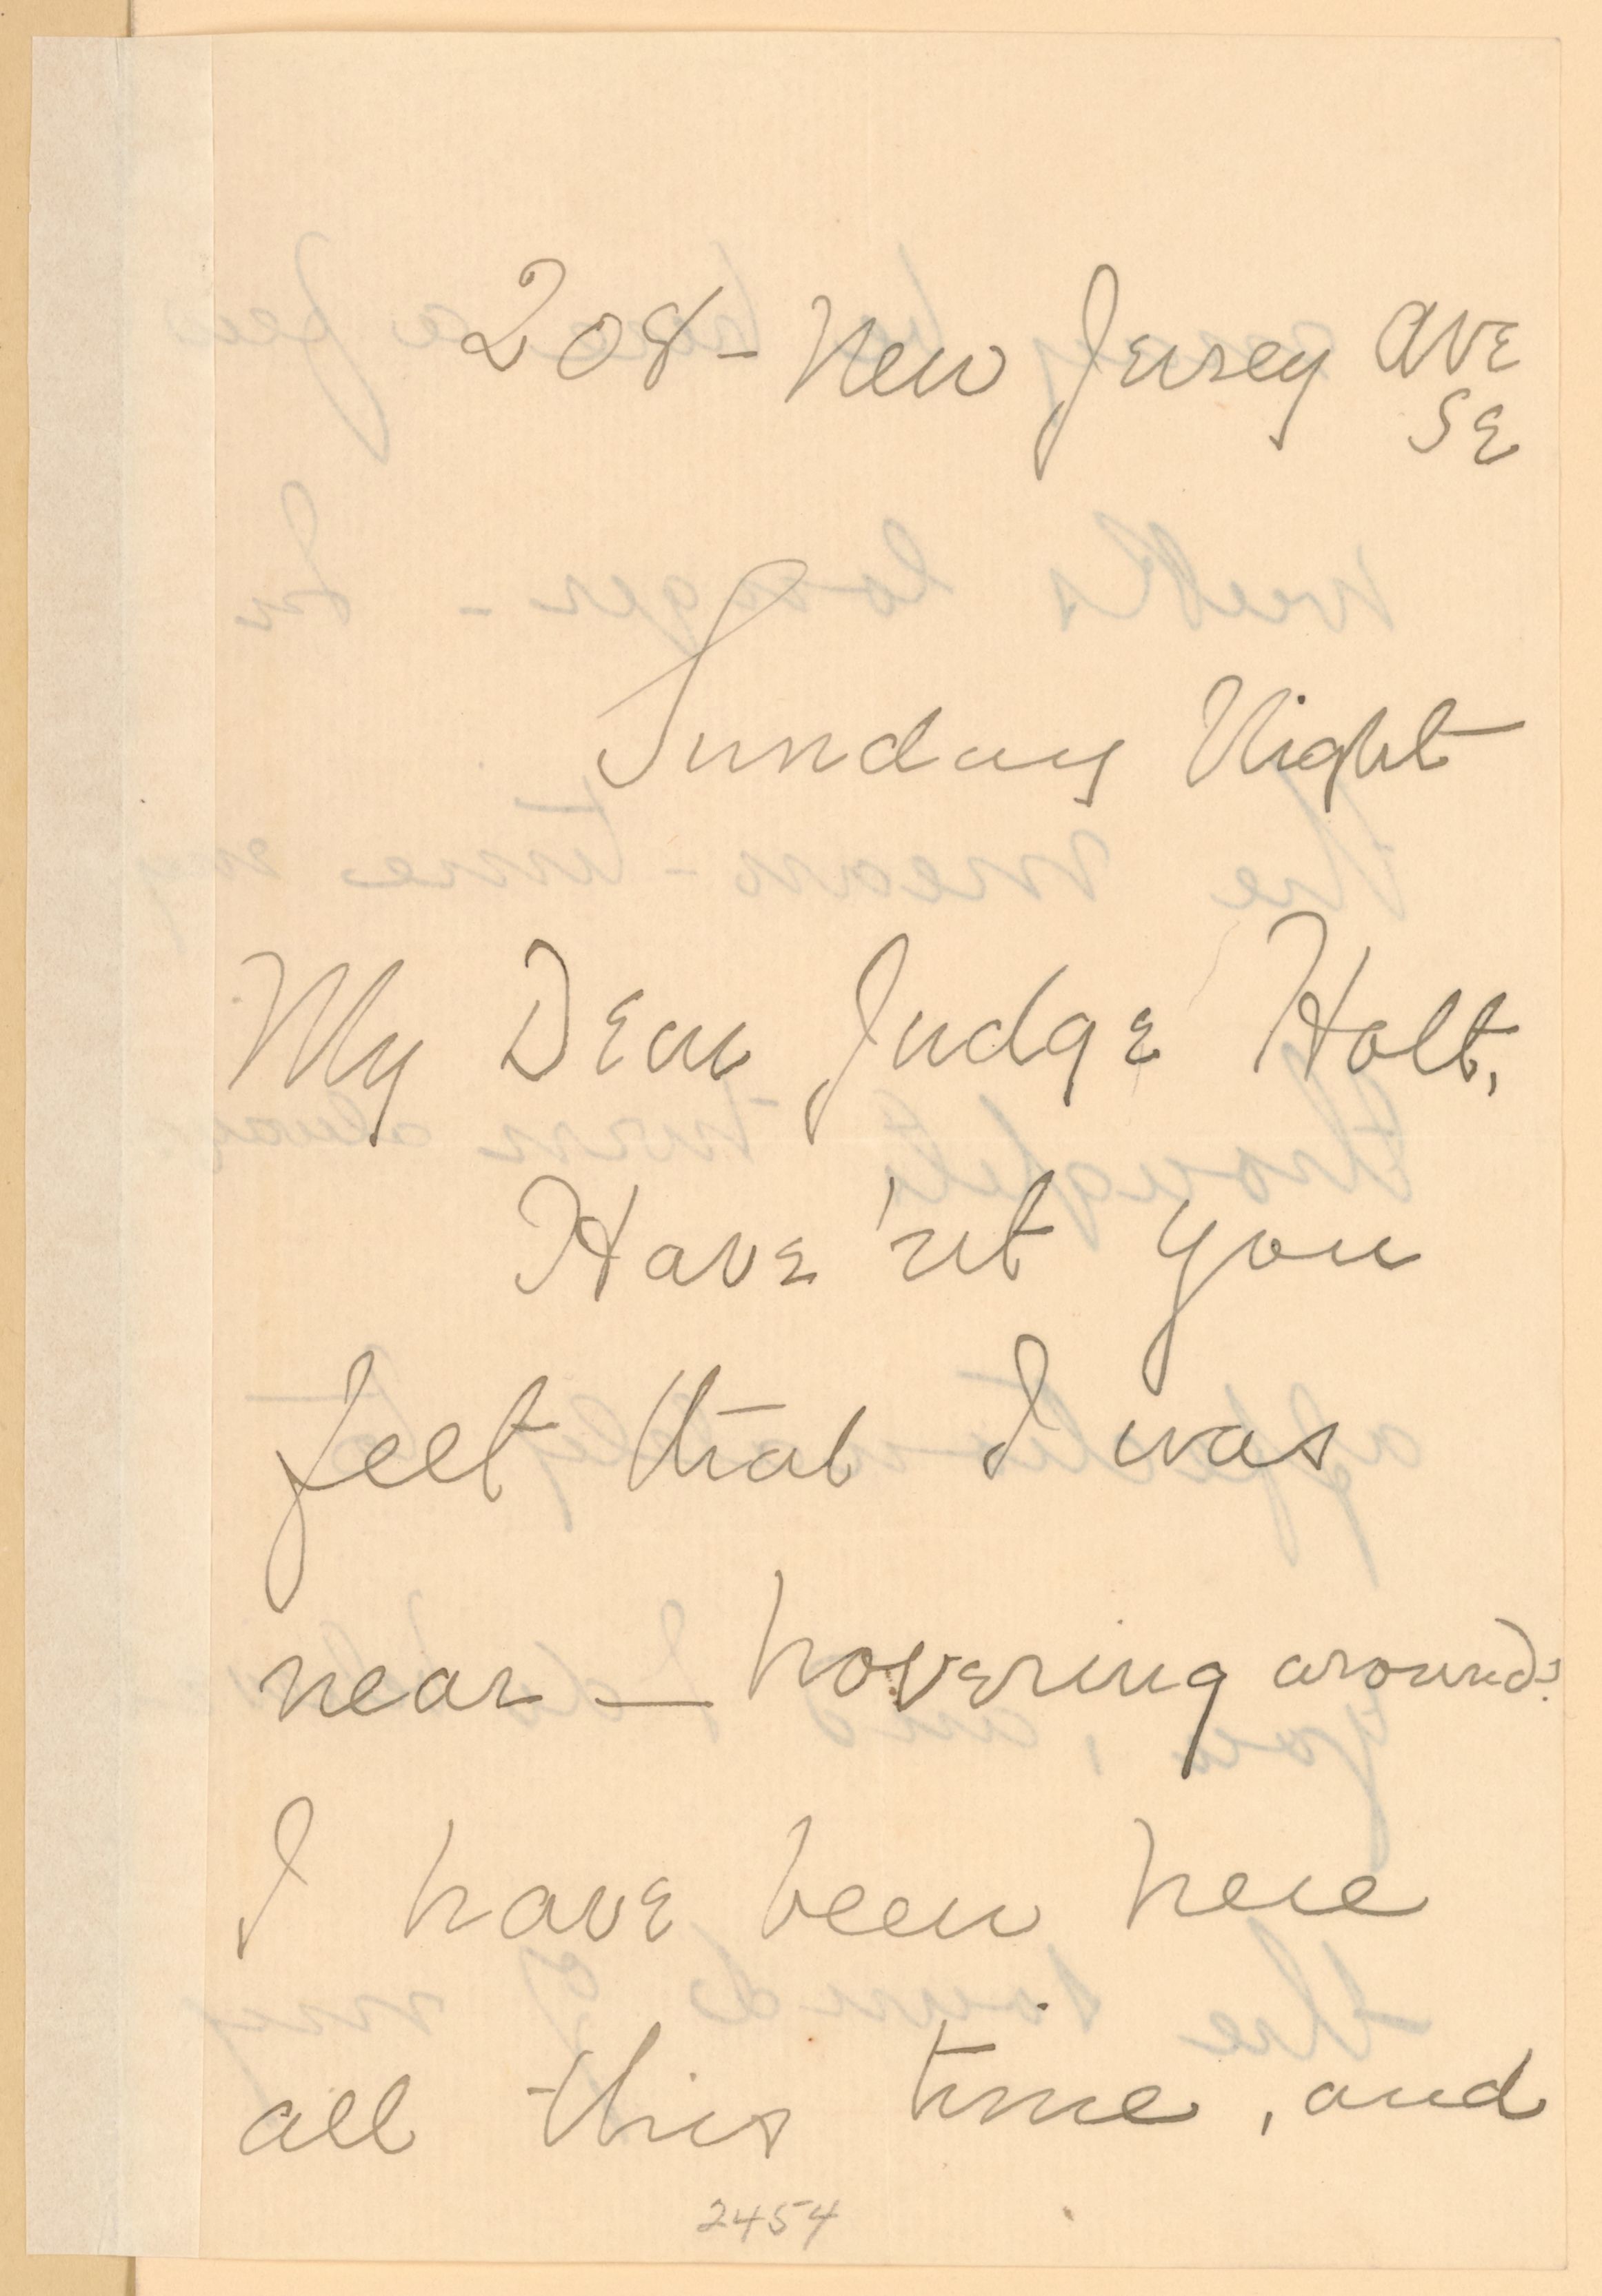 208 - New Jersey Ave
SE
Sunday Night
My Dear Judge Holt,
Have 'nt you
felt that I was
near — hovering around?
I have been here
all this time, and
2454